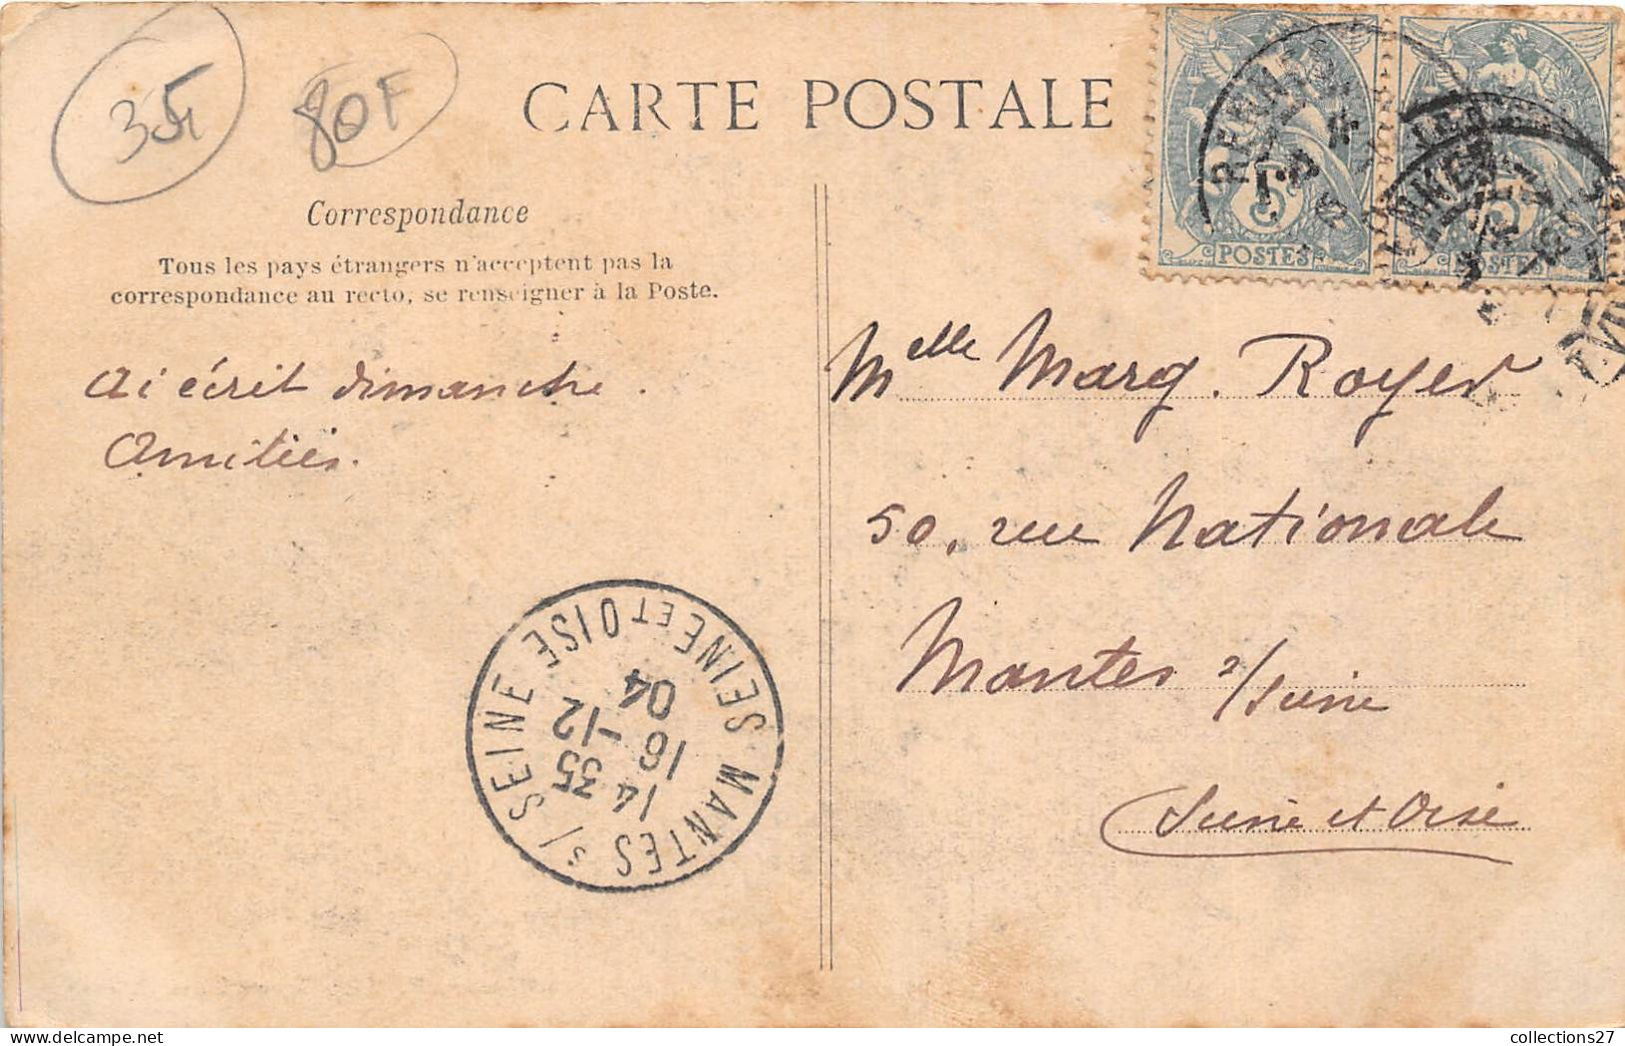 35
80F
CARTE POSTALE
Correspondance
Tous les pays étrangers n'acceptent pas la
correspondance au recto, se renseigner à la Poste.
Ai écrit dimanche.
Amitiés.
5
POSTES
5
POSTES
RENNES
Melle Marg. Royer
50, rue Nationale
Mantes s/Seine
Seine et Oise
MANTES s/ SEINE
SEINE ET OISE
14 35
16 -12
04
collections27